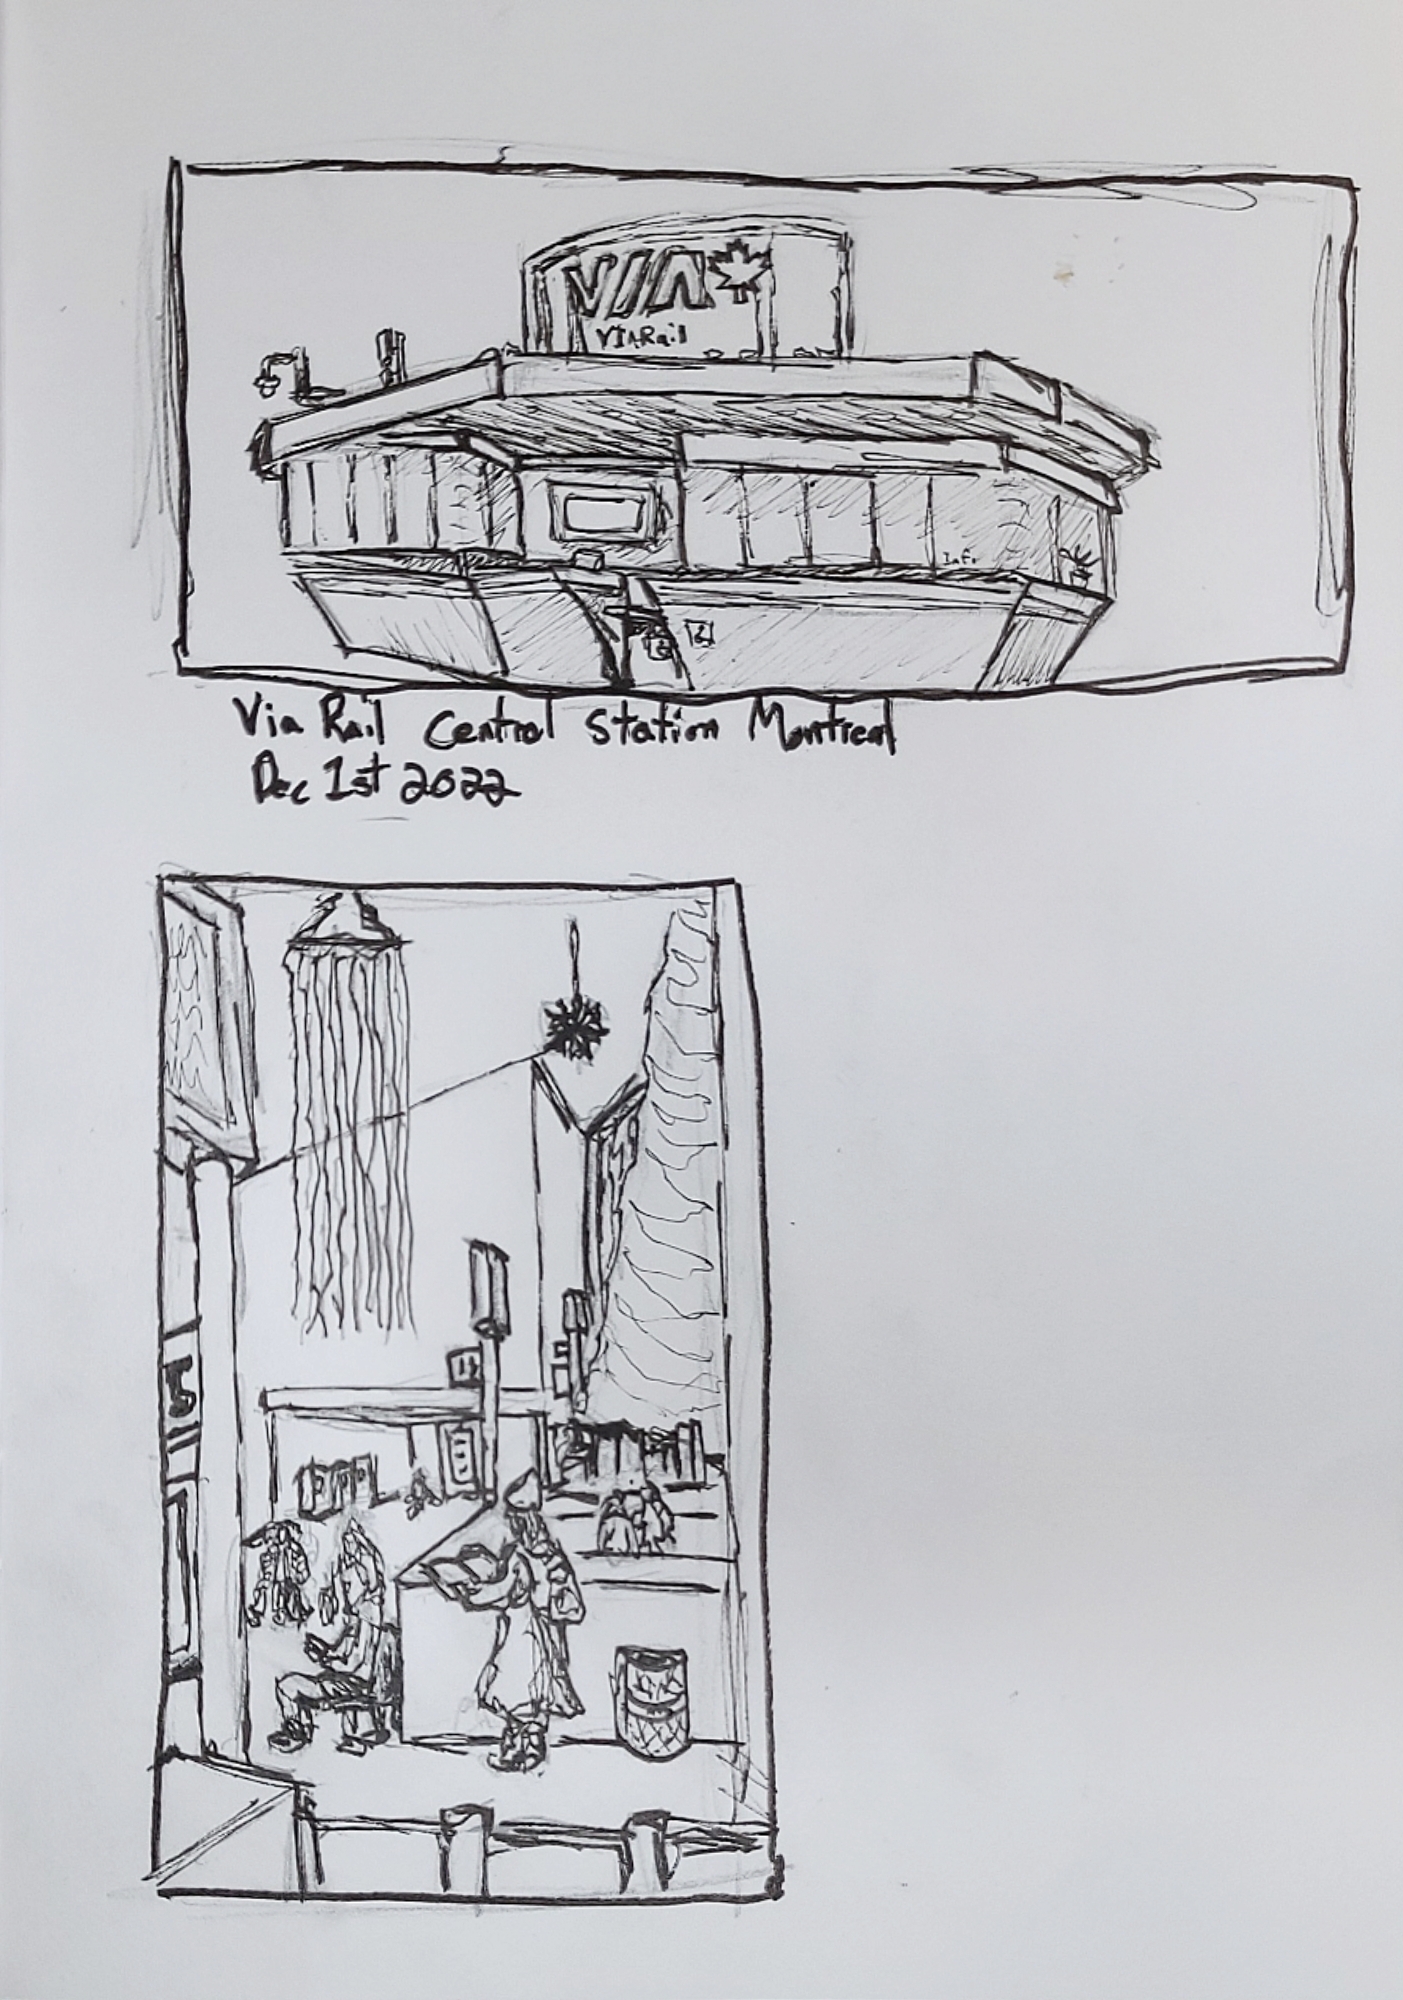 VIA
VIARail
Info
Via Rail Central Station Montreal
Dec 1st 2022